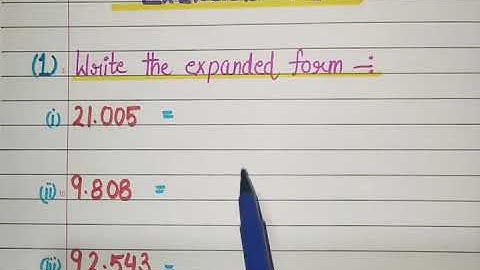 (1) Write the expanded form ÷
(i) 21.005 =
(ii) 9.808 =
(iii) 92.543 =